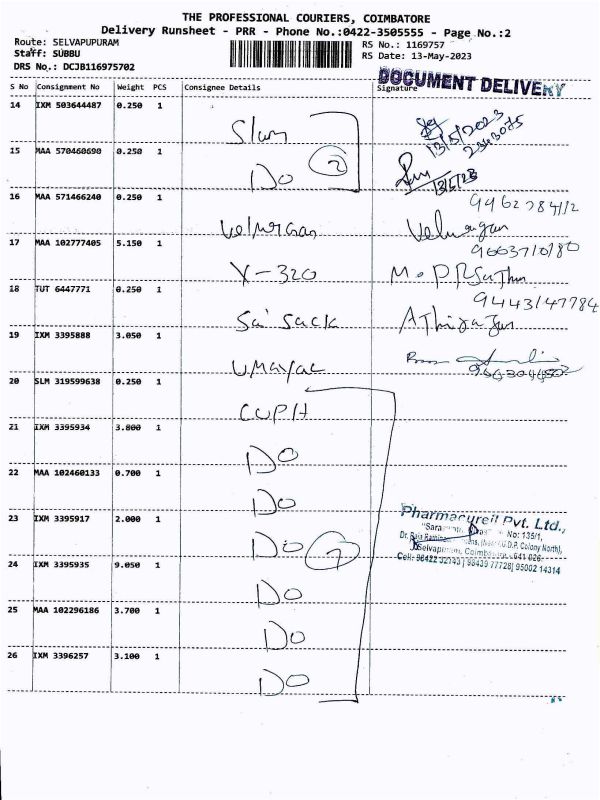 THE PROFESSIONAL COURIERS, COIMBATORE
Delivery Runsheet - PRR - Phone No.:0422-3505555 - Page No.:2
Route: SELVAPUPURAM
RS No.: 1169757
Staff: SUBBU
RS Date: 13-May-2023
DRS No.: DCJB116975702
DOCUMENT DELIVERY
S No Consignment No Weight PCS Consignee Details Signature
14 IXM 503644487 0.250 1
13/5/2023
15 MAA 570460690 0.250 1 Do 2
16 MAA 571466240 0.250 1 Velmurgan Velmurgan
17 MAA 102777405 5.150 1 X-320
18 TUT 6447771 0.250 1 Sai Sack
9443147784
19 IXM 3395888 3.050 1 Umayal
20 SLM 319599638 0.250 1 CUPH
21 IXM 3395934 3.800 1 Do
22 MAA 102460133 0.700 1 Do
23 IXM 3395917 2.000 1 Do 7
Pharmacureil Pvt. Ltd.,
No: 135/1,
Colony North),
Selvapuram, Coimbatore - 641 026.
Cell: 98422 32143 | 98439 77728 | 95002 14314
24 IXM 3395935 9.050 1 Do
25 MAA 102296186 3.700 1 Do
26 IXM 3396257 3.100 1 Do